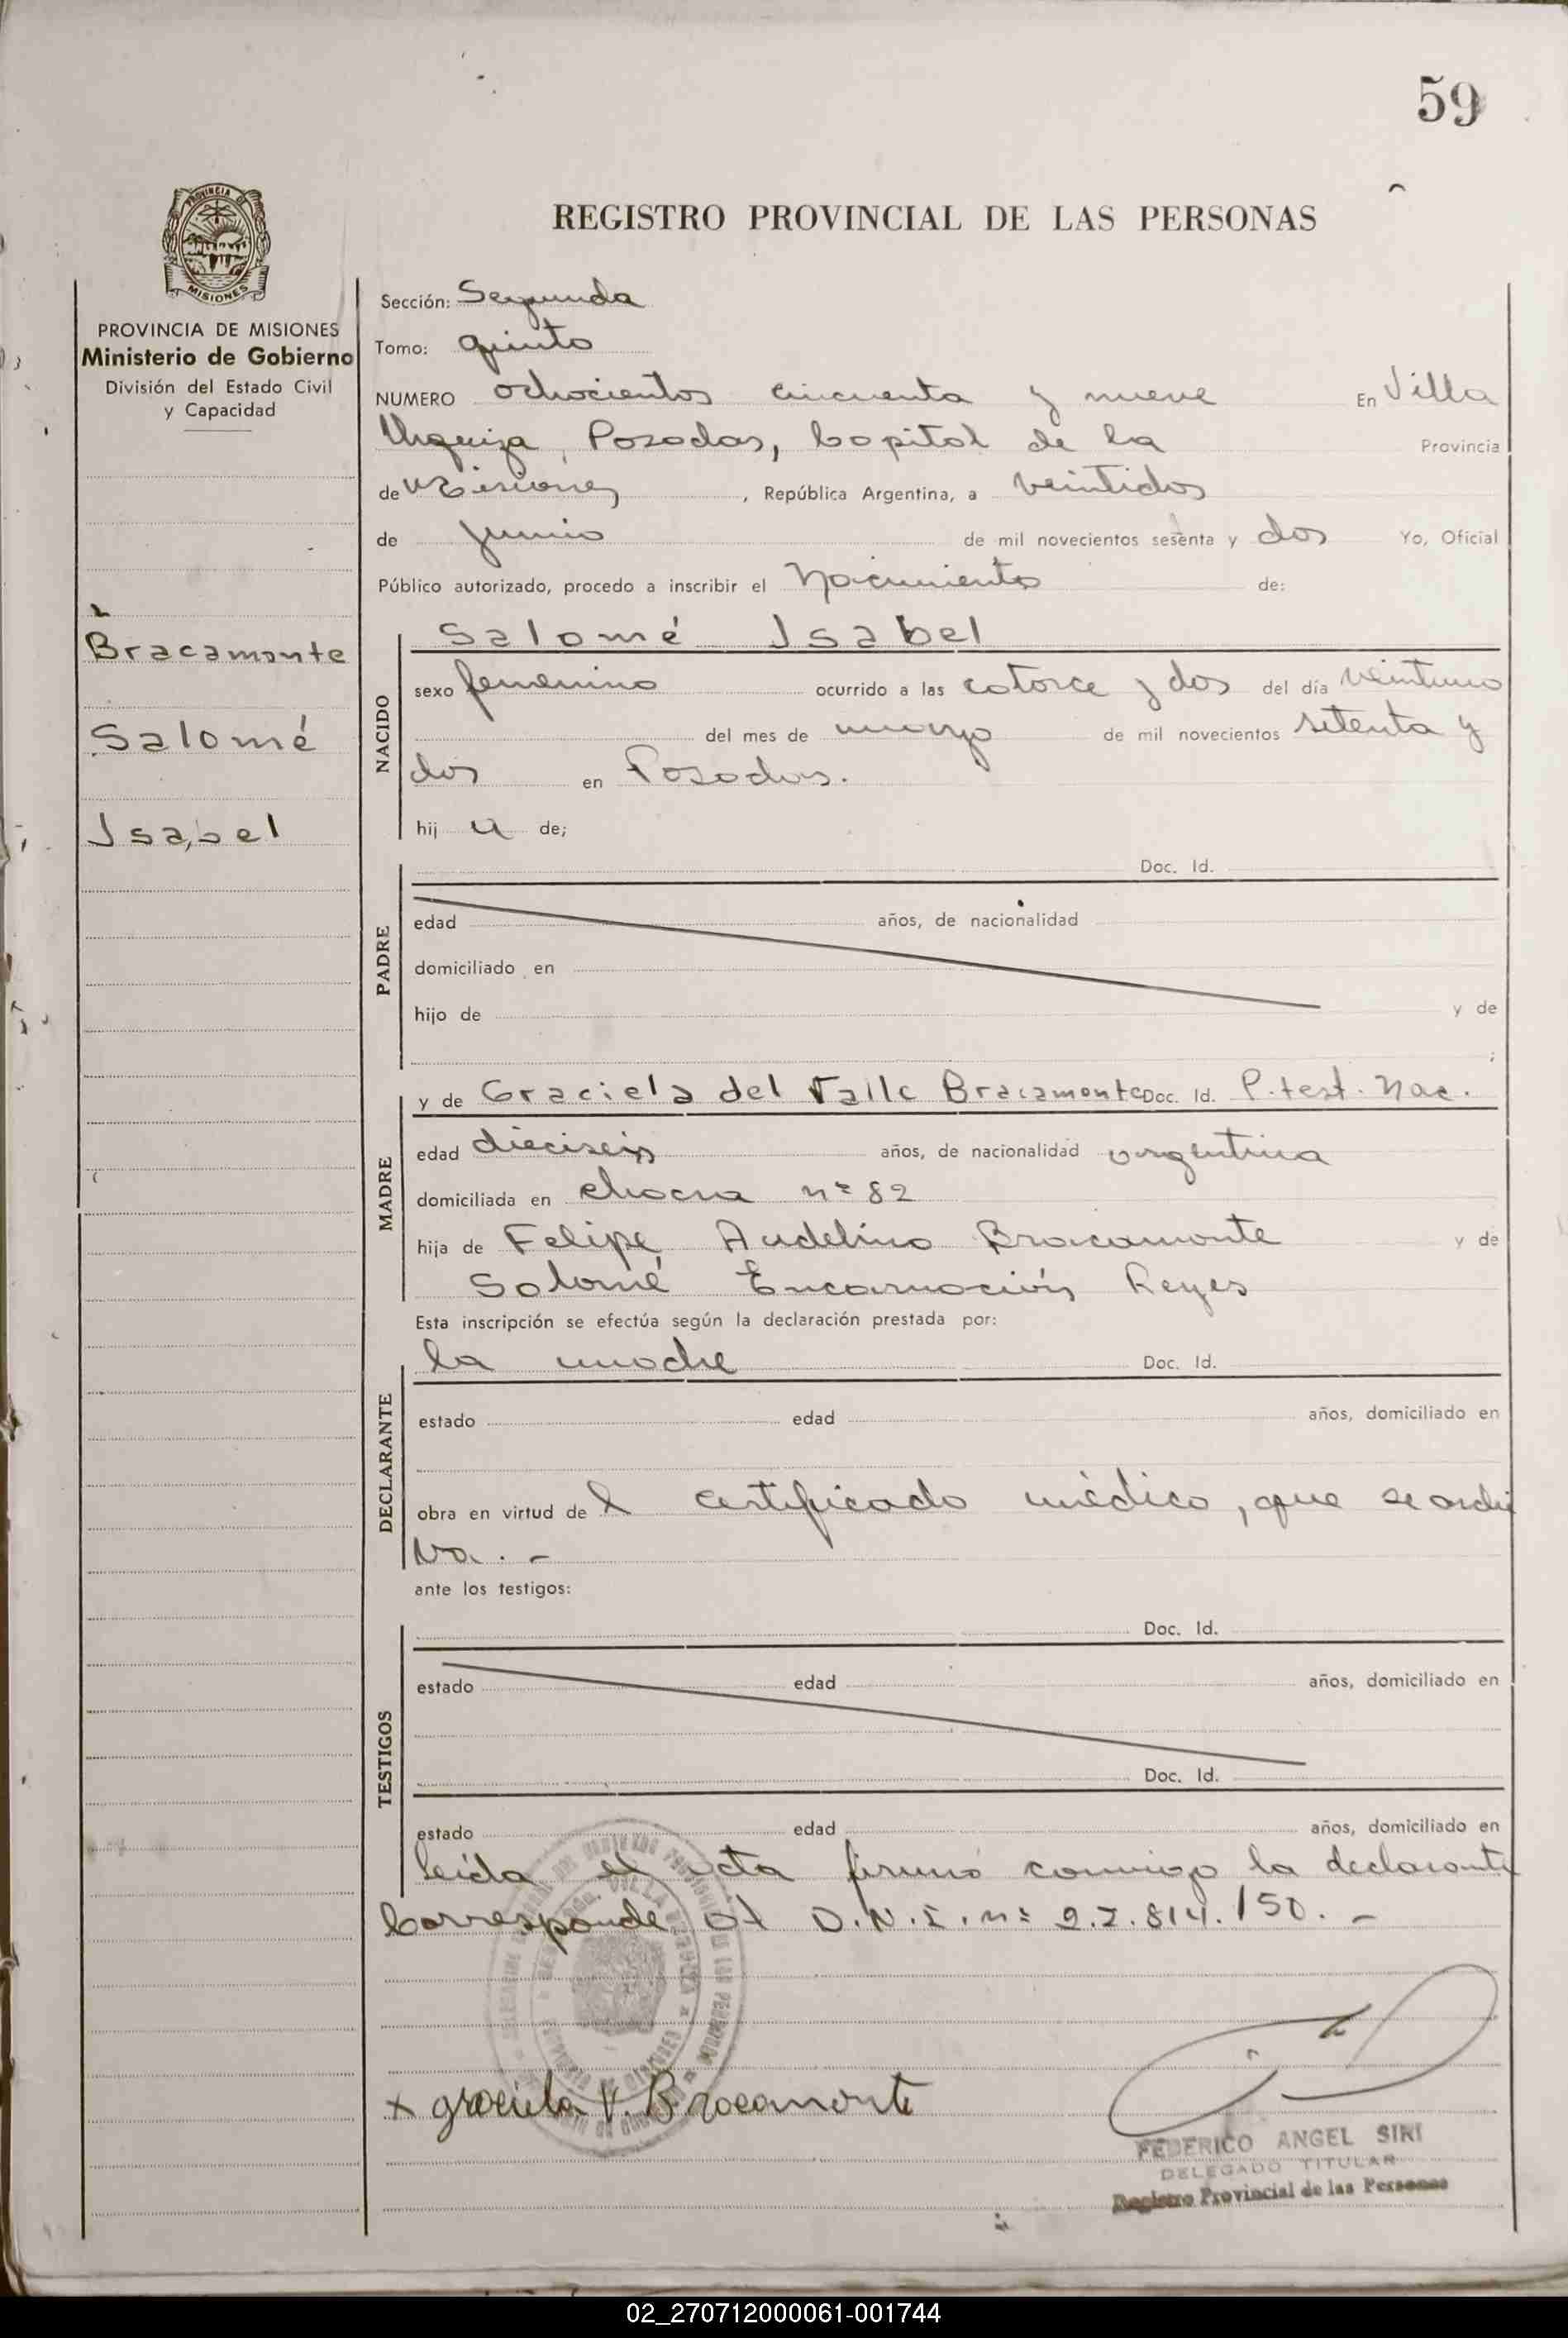 59
REGISTRO PROVINCIAL DE LAS PERSONAS
PROVINCIA DE MISIONES
Ministerio de Gobierno
División del Estado Civil
y Capacidad
Bracamonte
Salomé
Isabel
Sección: Segunda
Tomo: quinto
NUMERO ochocientos cincuenta y nueve En Villa
Urquiza, Posadas, Capital de la Provincia
de Misiones, República Argentina, a veintidos
de junio de mil novecientos setenta y dos Yo, Oficial
Público autorizado, procedo a inscribir el Nacimiento de:
NACIDO
Salomé Isabel
sexo femenino ocurrido a las catorce y dos del día veintiuno
del mes de marzo de mil novecientos setenta y
dos en Posadas.
hij a de;
PADRE
Doc. Id.
edad años, de nacionalidad
domiciliado en
hijo de y de
;
MADRE
y de Graciela del Valle Bracamonte Doc. Id. P. test. Nac.
edad dieciseis años, de nacionalidad argentina
domiciliada en chacra nº 82
hija de Felipe Audelino Bracamonte y de
Salomé Encarnación Reyes
Esta inscripción se efectúa según la declaración prestada por:
DECLARANTE
la madre Doc. Id.
estado edad años, domiciliado en
obra en virtud de l certificado médico, que se archi
va. -
ante los testigos:
TESTIGOS
Doc. Id.
estado edad años, domiciliado en
Doc. Id.
estado edad años, domiciliado en
leída el acta firmó conmigo la declarante
Corresponde al D.N.I. nº 22.814.150. -
x graciela V. Bracamonte
FEDERICO ANGEL SIRI
DELEGADO TITULAR
Registro Provincial de las Personas
02_270712000061-001744